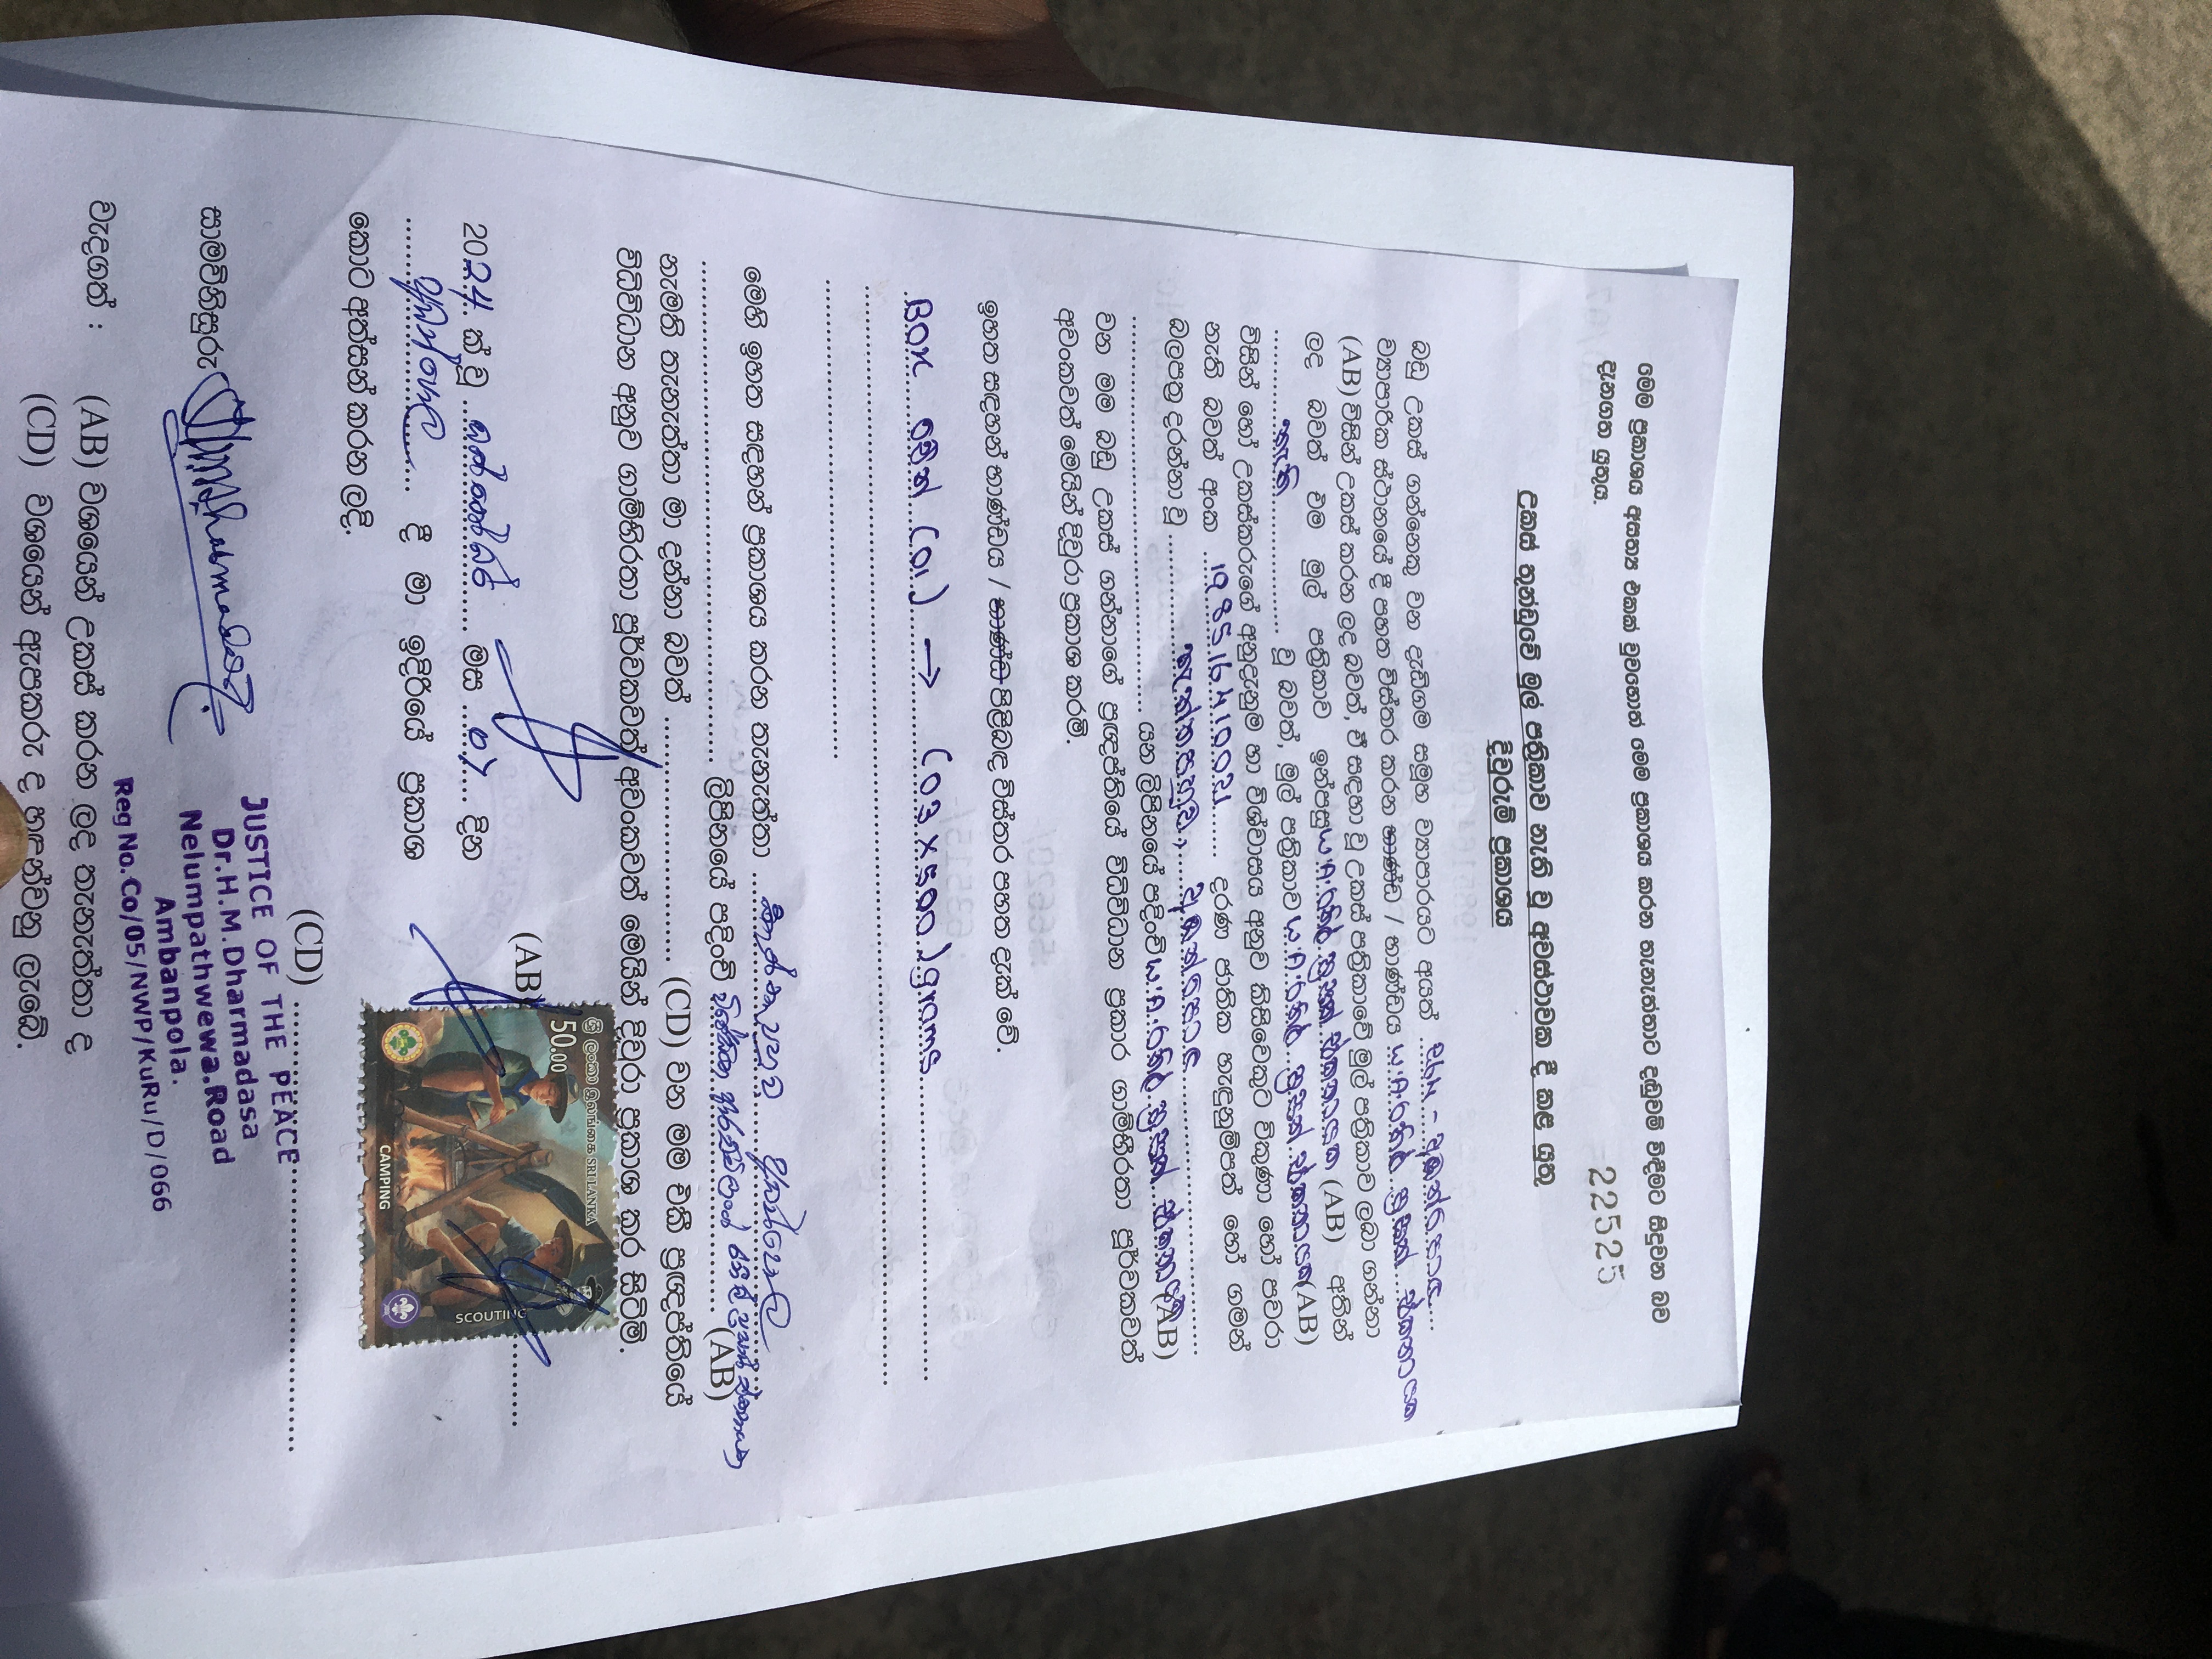 මෙම ප්‍රකාශය අසත්‍ය එකක් වුවහොත් මෙම ප්‍රකාශය කරන තැනැත්තාට දඬුවම් විඳීමට සිදුවන බව
දැනගත යුතුය.
22525
උකස් තුන්ඩුවේ මුල් පත්‍රිකාව නැති වූ අවස්ථාවක දී කළ යුතු
දිවුරුම් ප්‍රකාශය
බඩු උකස් ගන්නෙකු වන දැඩිගම සමූහ ව්‍යාපාරයට අයත් - අඹන්පොල
ව්‍යාපාරික ස්ථානයේ දී පහත විස්තර කරන භාණ්ඩ / භාණ්ඩය W.A. ඒකනායක
(AB) විසින් උකස් කරන ලද බවත්, ඒ සඳහා වූ උකස් පත්‍රිකාවේ මුල් පත්‍රිකාව ලබා ගන්නා
ලද බවත් එම මුල් පත්‍රිකාව ඉන්පසු W.A. ඒකනායක (AB) අතින්
නැති වූ බවත්, මුල් පත්‍රිකාව W.A. ඒකනායක (AB)
විසින් හෝ උකස්කරුගේ අනුදැනුම හා විශ්වාසය අනුව කිසිවෙකුට විකුණා හෝ පවරා
නැති බවත් අංක 198516410021 දරණ ජාතික හැඳුනුම්පත් හෝ ගමන්
බලපත්‍ර දරන්නා වූ අඹන්පොල
යන ලිපිනයේ පදිංචි W.A. ඒකනායක (AB)
වන මම බඩු උකස් ගන්නාගේ ප්‍රඥප්තියේ විධිවිධාන ප්‍රකාර ගාම්භීරතා පූර්වකවත්
අවංකවත් මෙයින් දිවුරා ප්‍රකාශ කරමි.
ඉහත සඳහන් භාණ්ඩය / භාණ්ඩ පිළිබඳ විස්තර පහත දැක් වේ.
BOX චේන් (01) → (03 x 500) grams
මෙහි ඉහත සඳහන් ප්‍රකාශය කරන තැනැත්තා අඹන්පොල
ලිපිනයේ පදිංචි ඒකනායක (AB)
නැමති තැනැත්තා මා දන්නා බවත් (CD) වන මම එකී ප්‍රඥප්තියේ
විධිවිධාන අනුව ගාම්භිරතා පූර්වකවත් අවංකවත් මෙයින් දිවුරා ප්‍රකාශ කර සිටිමි.
ශ්‍රී ලංකා இலங்கை SRI LANKA
50.00
SCOUTING
CAMPING
(AB)
2024 ක් වූ ඔක්තෝබර් මස 07 දින
අඹන්පොල දී මා ඉදිරියේ ප්‍රකාශ
කොට අත්සන් කරන ලදි.
(CD)
සාමවිනිසුරු
JUSTICE OF THE PEACE
Dr.H.M.Dharmadasa
Nelumpathwewa.Road
Ambanpola.
Reg No.Co/05/NWP/KuRu/D/066
වැදගත් : (AB) වශයෙන් උකස් කරන ලද තැනැත්තා ද
(CD) වශයෙන් ඇපකරු ද හඳුන්වනු ලැබේ.